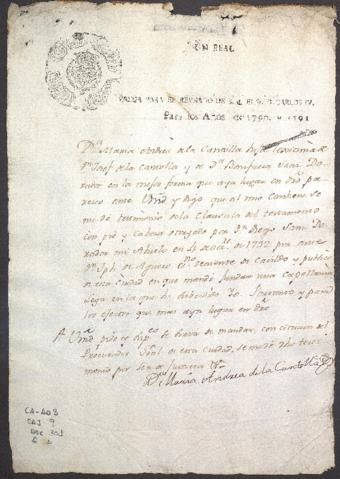 UN REAL
VALGA PARA EL REYNADO DE S. M. EL S. D. CARLOS IV.
Para los Años de 1790. y 1791
Dª Maria Andrea de la Cantolla hija legitima de
Dⁿ Josef de la Cantolla y de Dª Bonifacia
en la mejor forma que aya lugar en dro pa
resco ante Vmd y digo que al mio combiene se
me dé testimonio de la Clausula del testamento
con pie y cabeza otorgado por Dⁿ Diego
mi Abuelo en 4 de de 1732 por ante
Dⁿ Jph de Aguero Teniente de Cavildo y publico
de esta ciudad en que mandó fundar una Capellania
Lega en la que he
los efectos que mas aya lugar en dro
A Vmd pido y supco se sirva de mandar, con citacion del
Procurador Gral de esta ciudad, se me dé dho testi
monio por ser de Justicia
Dª Maria Andrea de la Cantolla
CA-A03
CAJ 9
DOC 301
f. 1